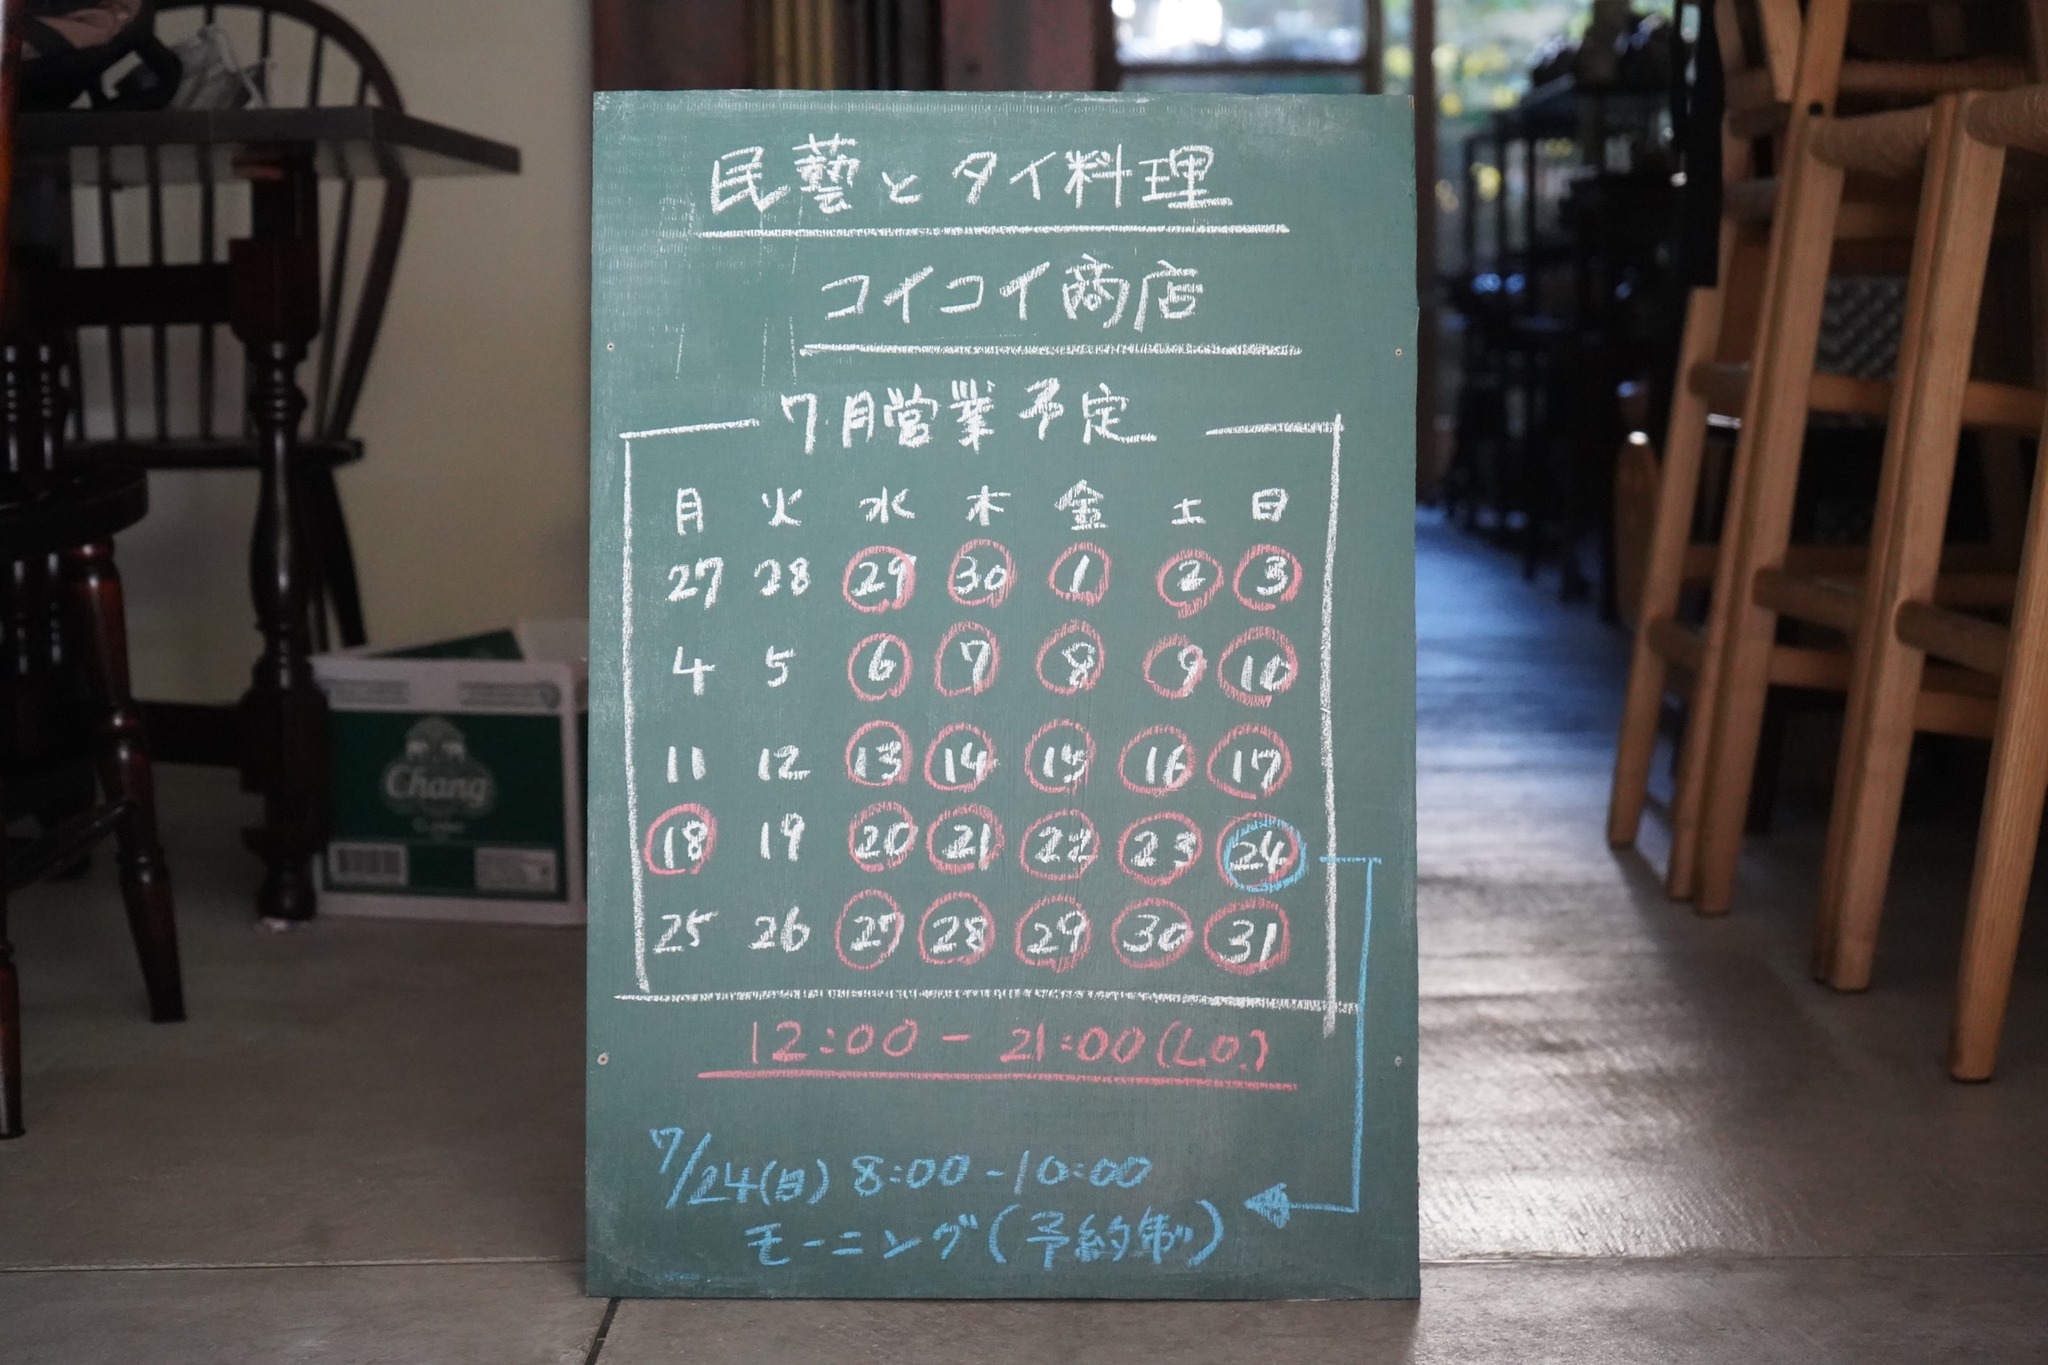 民藝とタイ料理
コイコイ商店
7月営業予定
月 火 水 木 金 土 日
27 28 29 30 1 2 3
4 5 6 7 8 9 10
11 12 13 14 15 16 17
18 19 20 21 22 23 24
25 26 27 28 29 30 31
12:00 - 21:00(L.O.)
7/24(日) 8:00 - 10:00
モーニング(予約制)
Chang